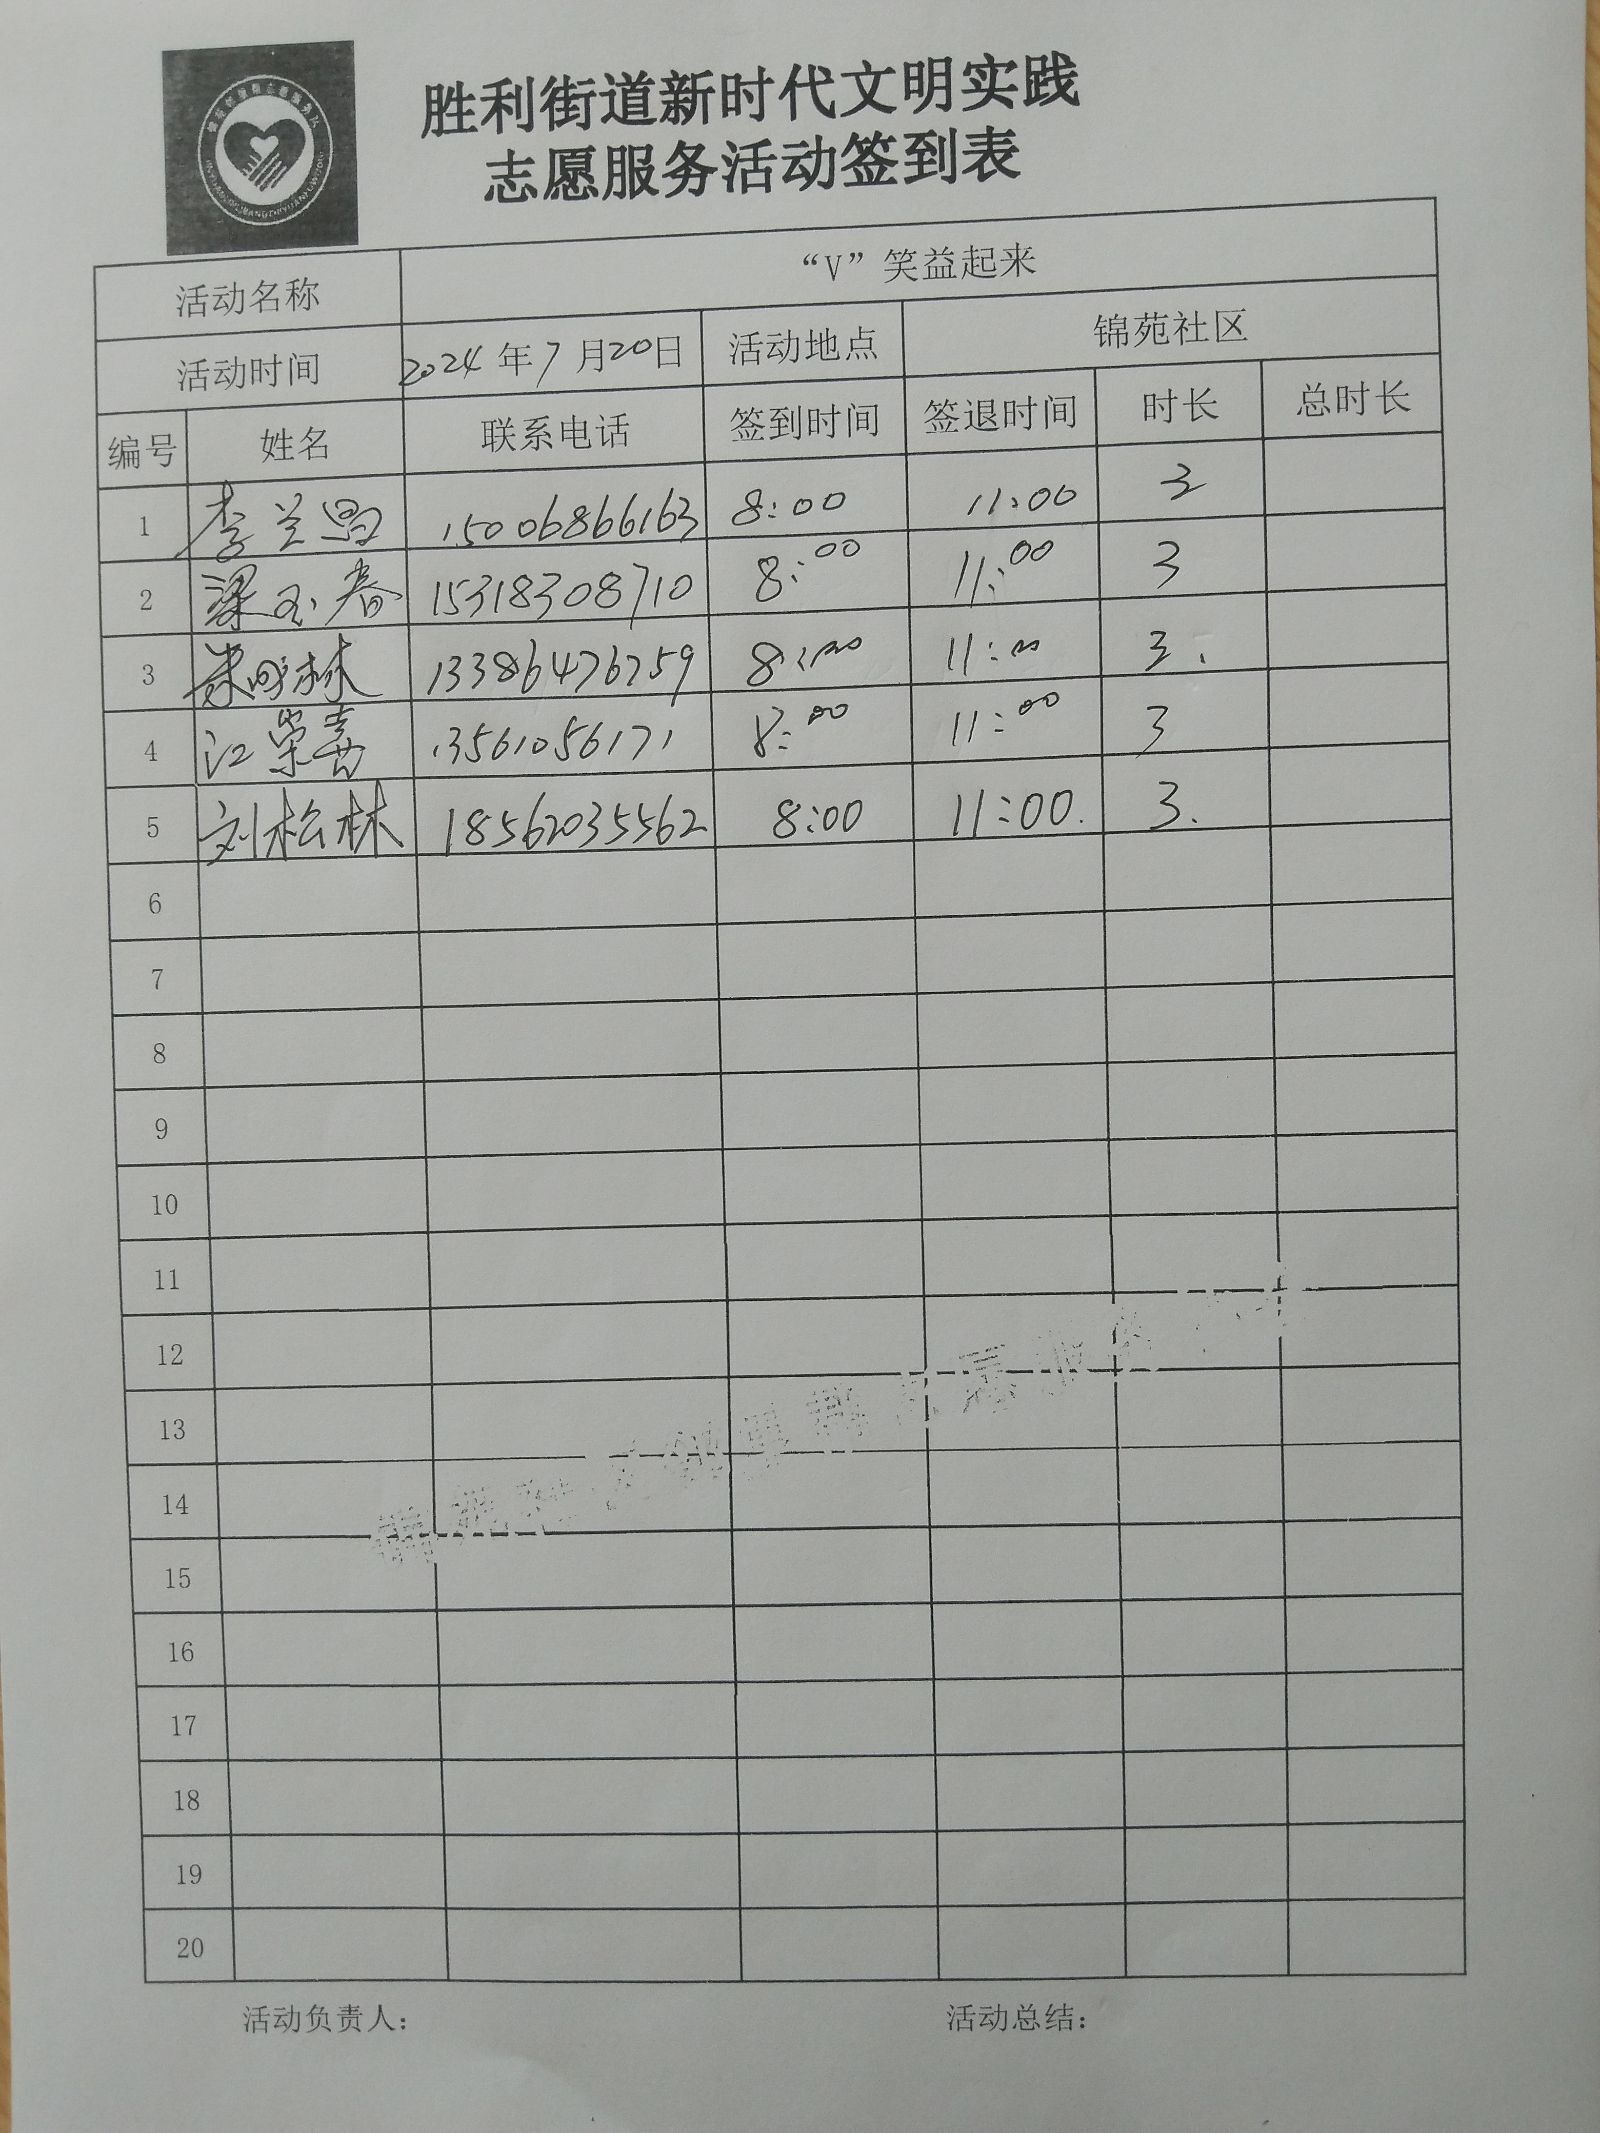 胜利街道新时代文明实践
志愿服务活动签到表
活动名称 “V”笑益起来
活动时间 2024年7月20日 活动地点 锦苑社区
编号 姓名 联系电话 签到时间 签退时间 时长 总时长
1 李兰昌 15006866163 8:00 11:00 3
2 梁玉春 15318308710 8:00 11:00 3
3 林 13386476759 8:00 11:00 3.
4 江荣喜 13561056171 8:00 11:00 3
5 刘松林 18562035562 8:00 11:00. 3.
6
7
8
9
10
11
12
13
14
15
16
17
18
19
20
活动负责人： 活动总结：